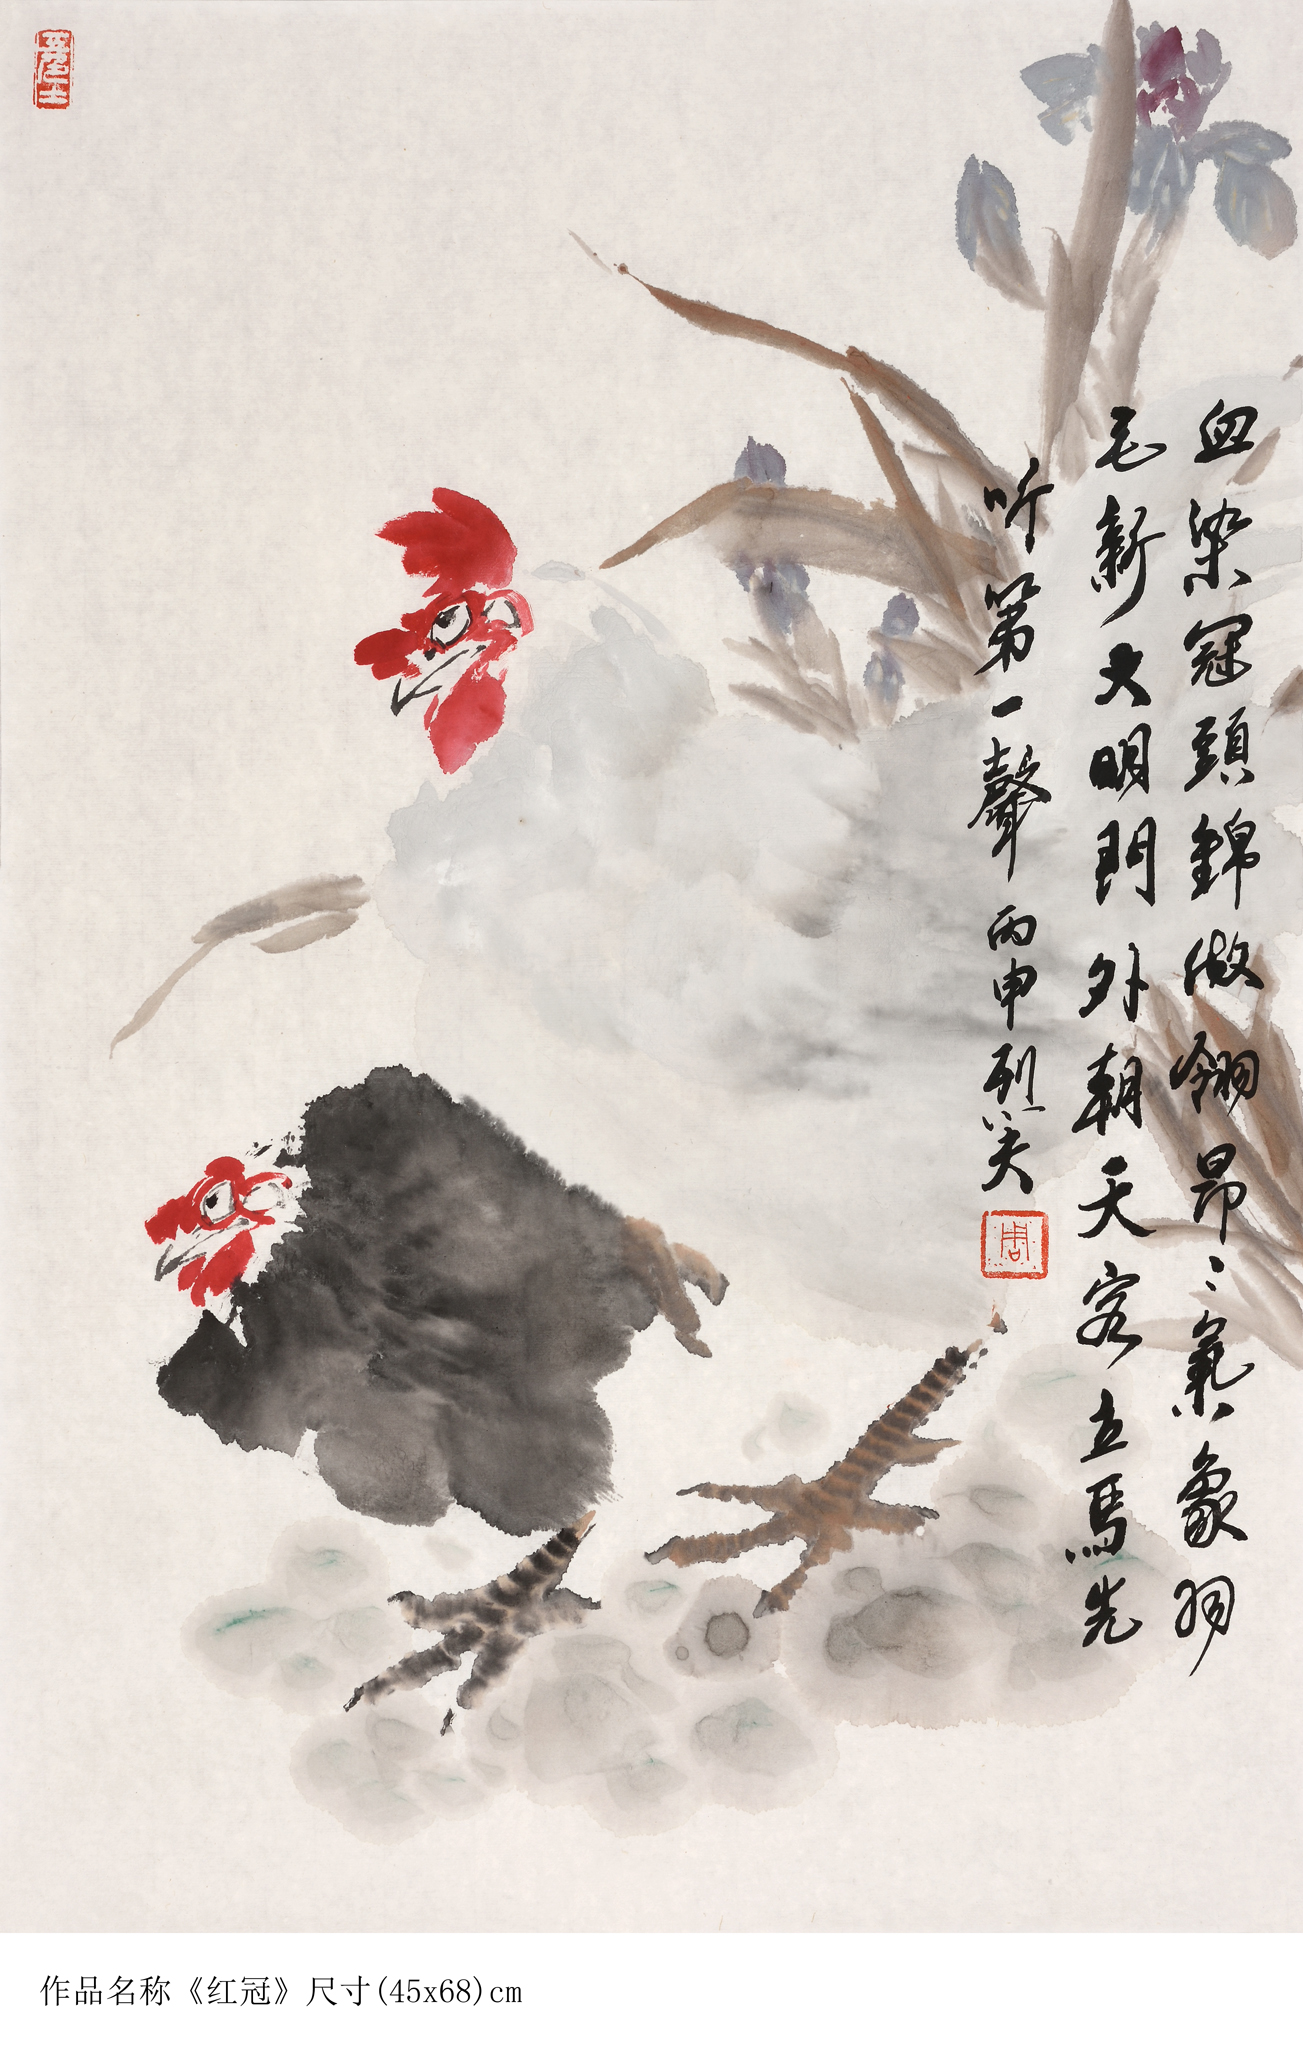 血染冠頭錦做翎昂〻氣象羽
毛新大明門外朝天客立馬先
听第一聲 丙申烈笑
周
作品名称《红冠》尺寸(45x68)cm